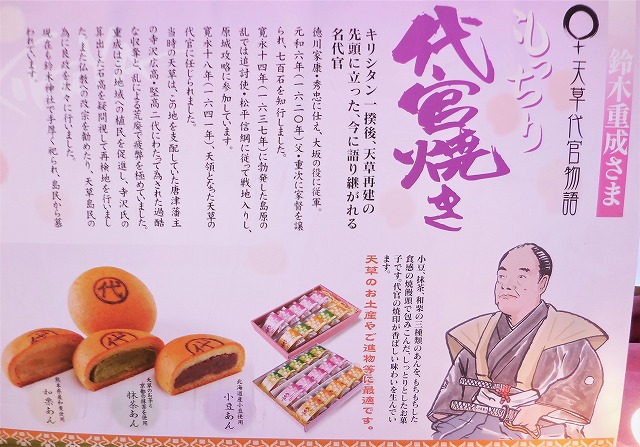 鈴木重成さま
天草代官物語
もっちり
代官焼き
キリシタン一揆後、天草再建の
先頭に立った、今に語り継がれる
名代官
徳川家康・秀忠に仕え、大坂の役に従軍。
元和六年（一六二〇年）父・重次に家督を譲
られ、七百石を知行しました。
寛永十四年（一六三七年）に勃発した島原の
乱では追討使・松平信綱に従って戦地入りし、
原城攻略に参加しています。
寛永十八年（一六四一年）、天領となった天草の
代官に任じられました。
当時の天草は、この地を支配していた唐津藩主
の寺沢広高・堅高二代にわたって為された過酷
な収奪と、乱による荒廃で疲弊を極めていました。
重成はこの地域への植民を促進し、寺沢氏の
算出した石高を疑問視して再検地を行いまし
た。また仏教への改宗を勧めたり、天草島民の
為に良政を次々に行いました。
現在も鈴木神社で手厚く祀られ、島民から慕
われています。
小豆、抹茶、和栗の三種類のあんを、もちもちした
食感の焼饅頭で包みこんだ、しっとりとしたお菓
子です。代官の焼印が香ばしい味わいを生んでい
ます。
天草のお土産やご進物等に最適です。
代
代
代
北海道産小豆使用
小豆あん
天草のお茶と
京都の抹茶を使用
抹茶あん
熊本県産和栗使用
和栗あん